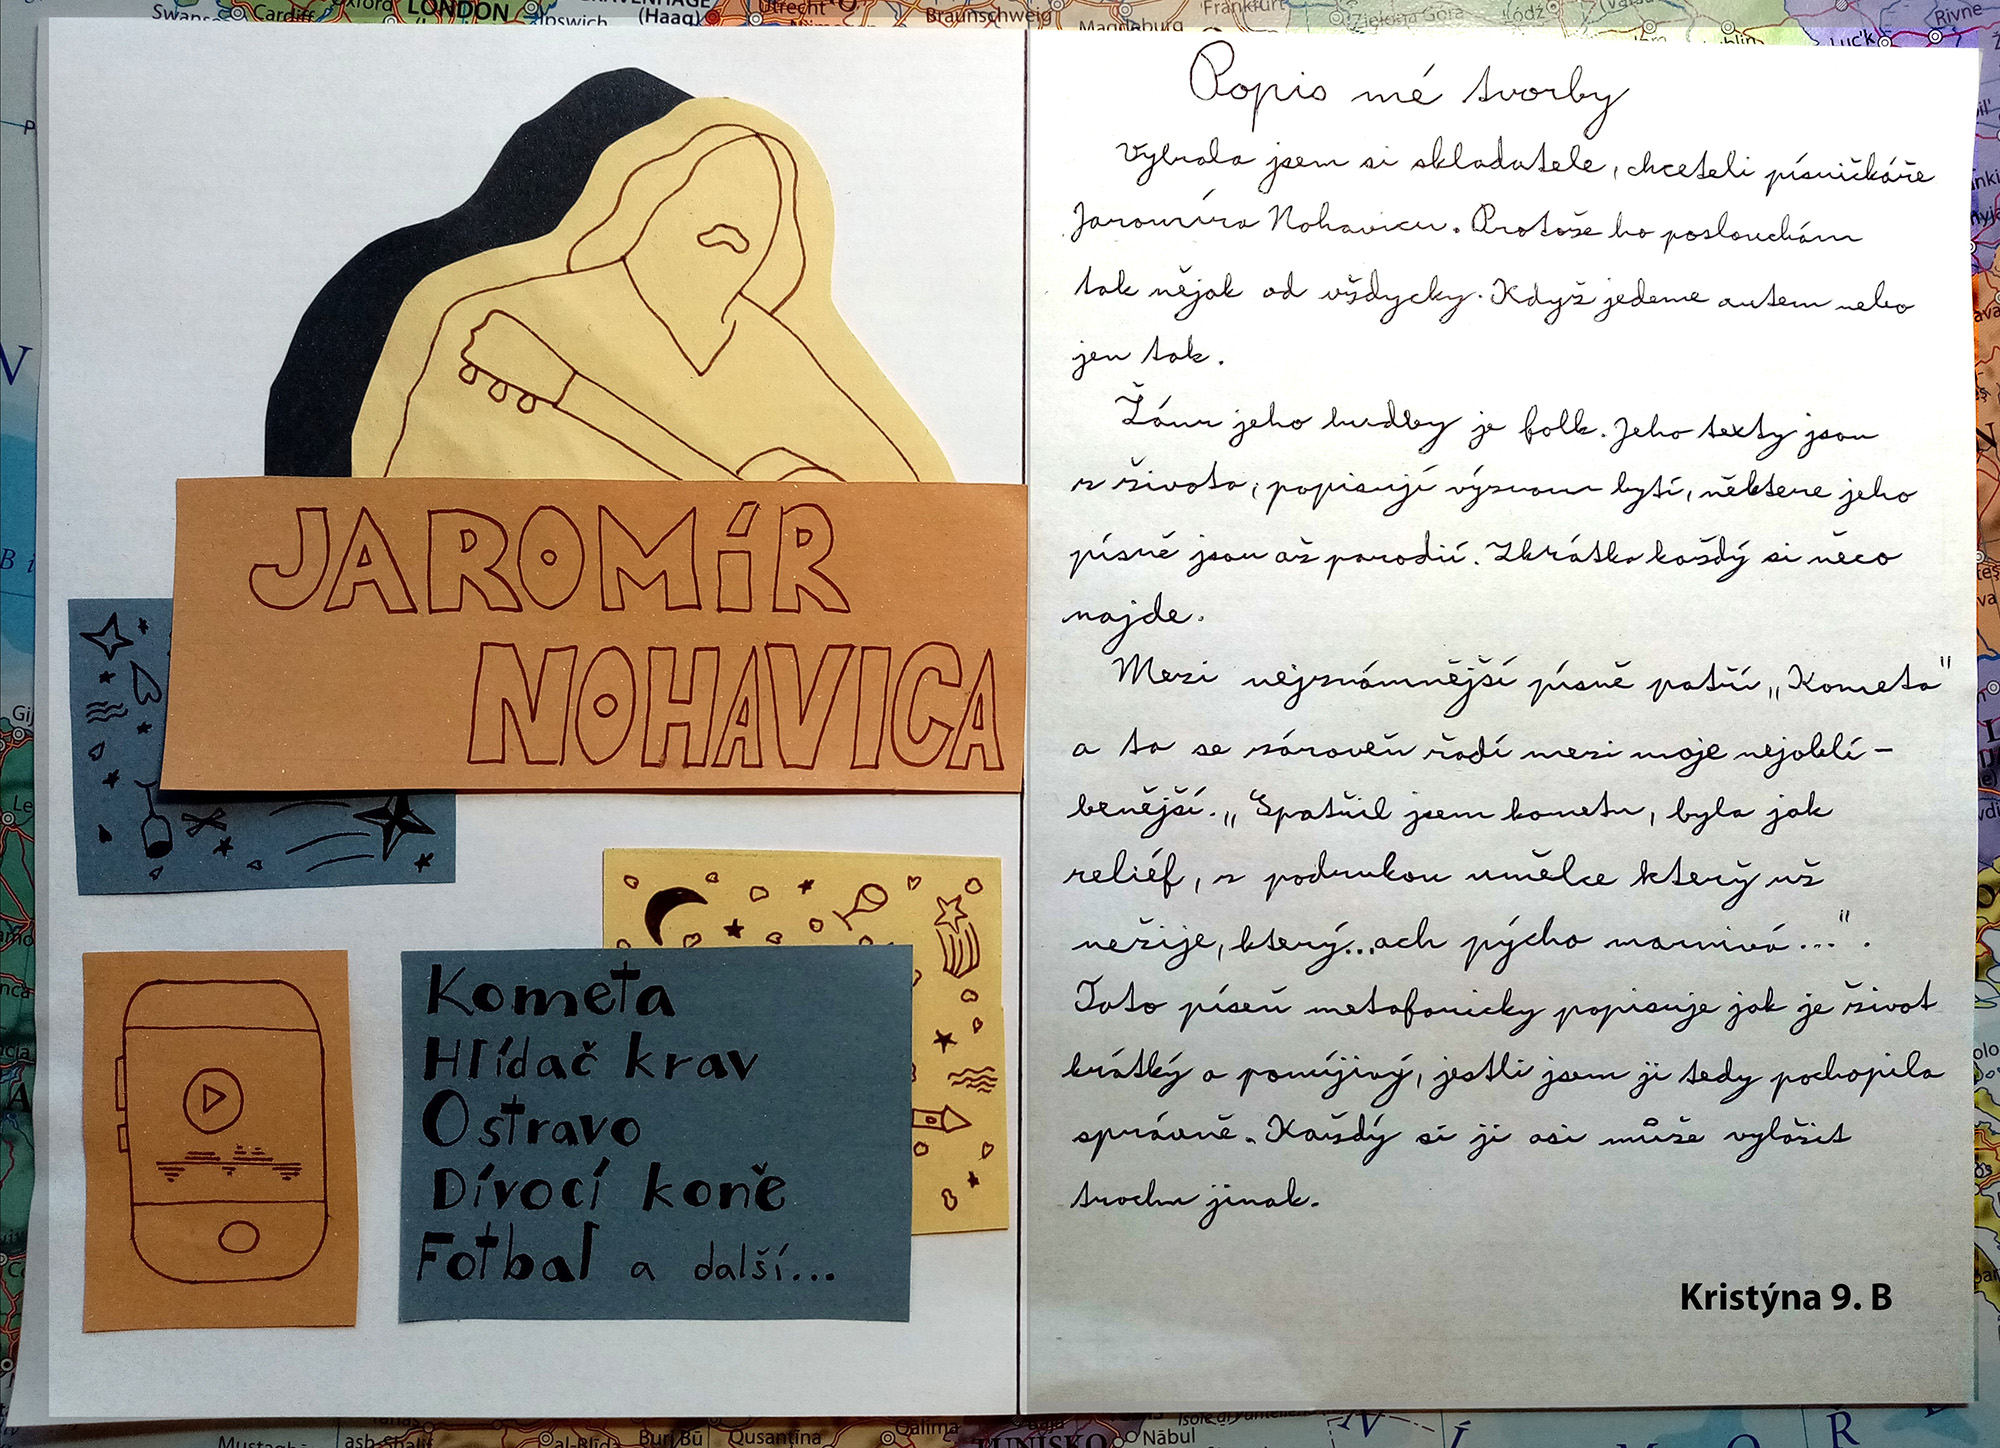 JAROMÍR
NOHAVICA
Kometa
Hlídač krav
Ostravo
Divocí koně
Fotbal a další...
Popis mé tvorby
Vybrala jsem si skladatele, chceteli písničkáře
Jaromíra Nohavicu. Protože ho poslouchám
tak nějak od vždycky. Když jedeme autem nebo
jen tak.
Žánr jeho hudby je folk. Jeho texty jsou
z života, popisují význam bytí, některe jeho
písně jsou až parodií. Zkrátka každý si něco
najde.
Mezi nejznámnější písně patří „Kometa"
a ta se zároveň řadí mezi moje nejoblí-
benější. „Spatřil jsem kometu, byla jak
reliéf, z podrukou umělce který už
nežije, který...ach pýcho marnivá...".
Tato píseň metaforicky popisuje jak je život
krátký a pomíjivý, jestli jsem ji tedy pochopila
správně. Každý si ji asi může vyložit
trochu jinak.
Kristýna 9. B
LONDON
Cardiff
Ipswich
(Haag)
Utrecht
Braunschweig
Magdeburg
Frankfurt
Zielona Góra
Łódź
Luc'k
Rivne
Qalima
Qusanṭīna
TUNISKO
Nābul